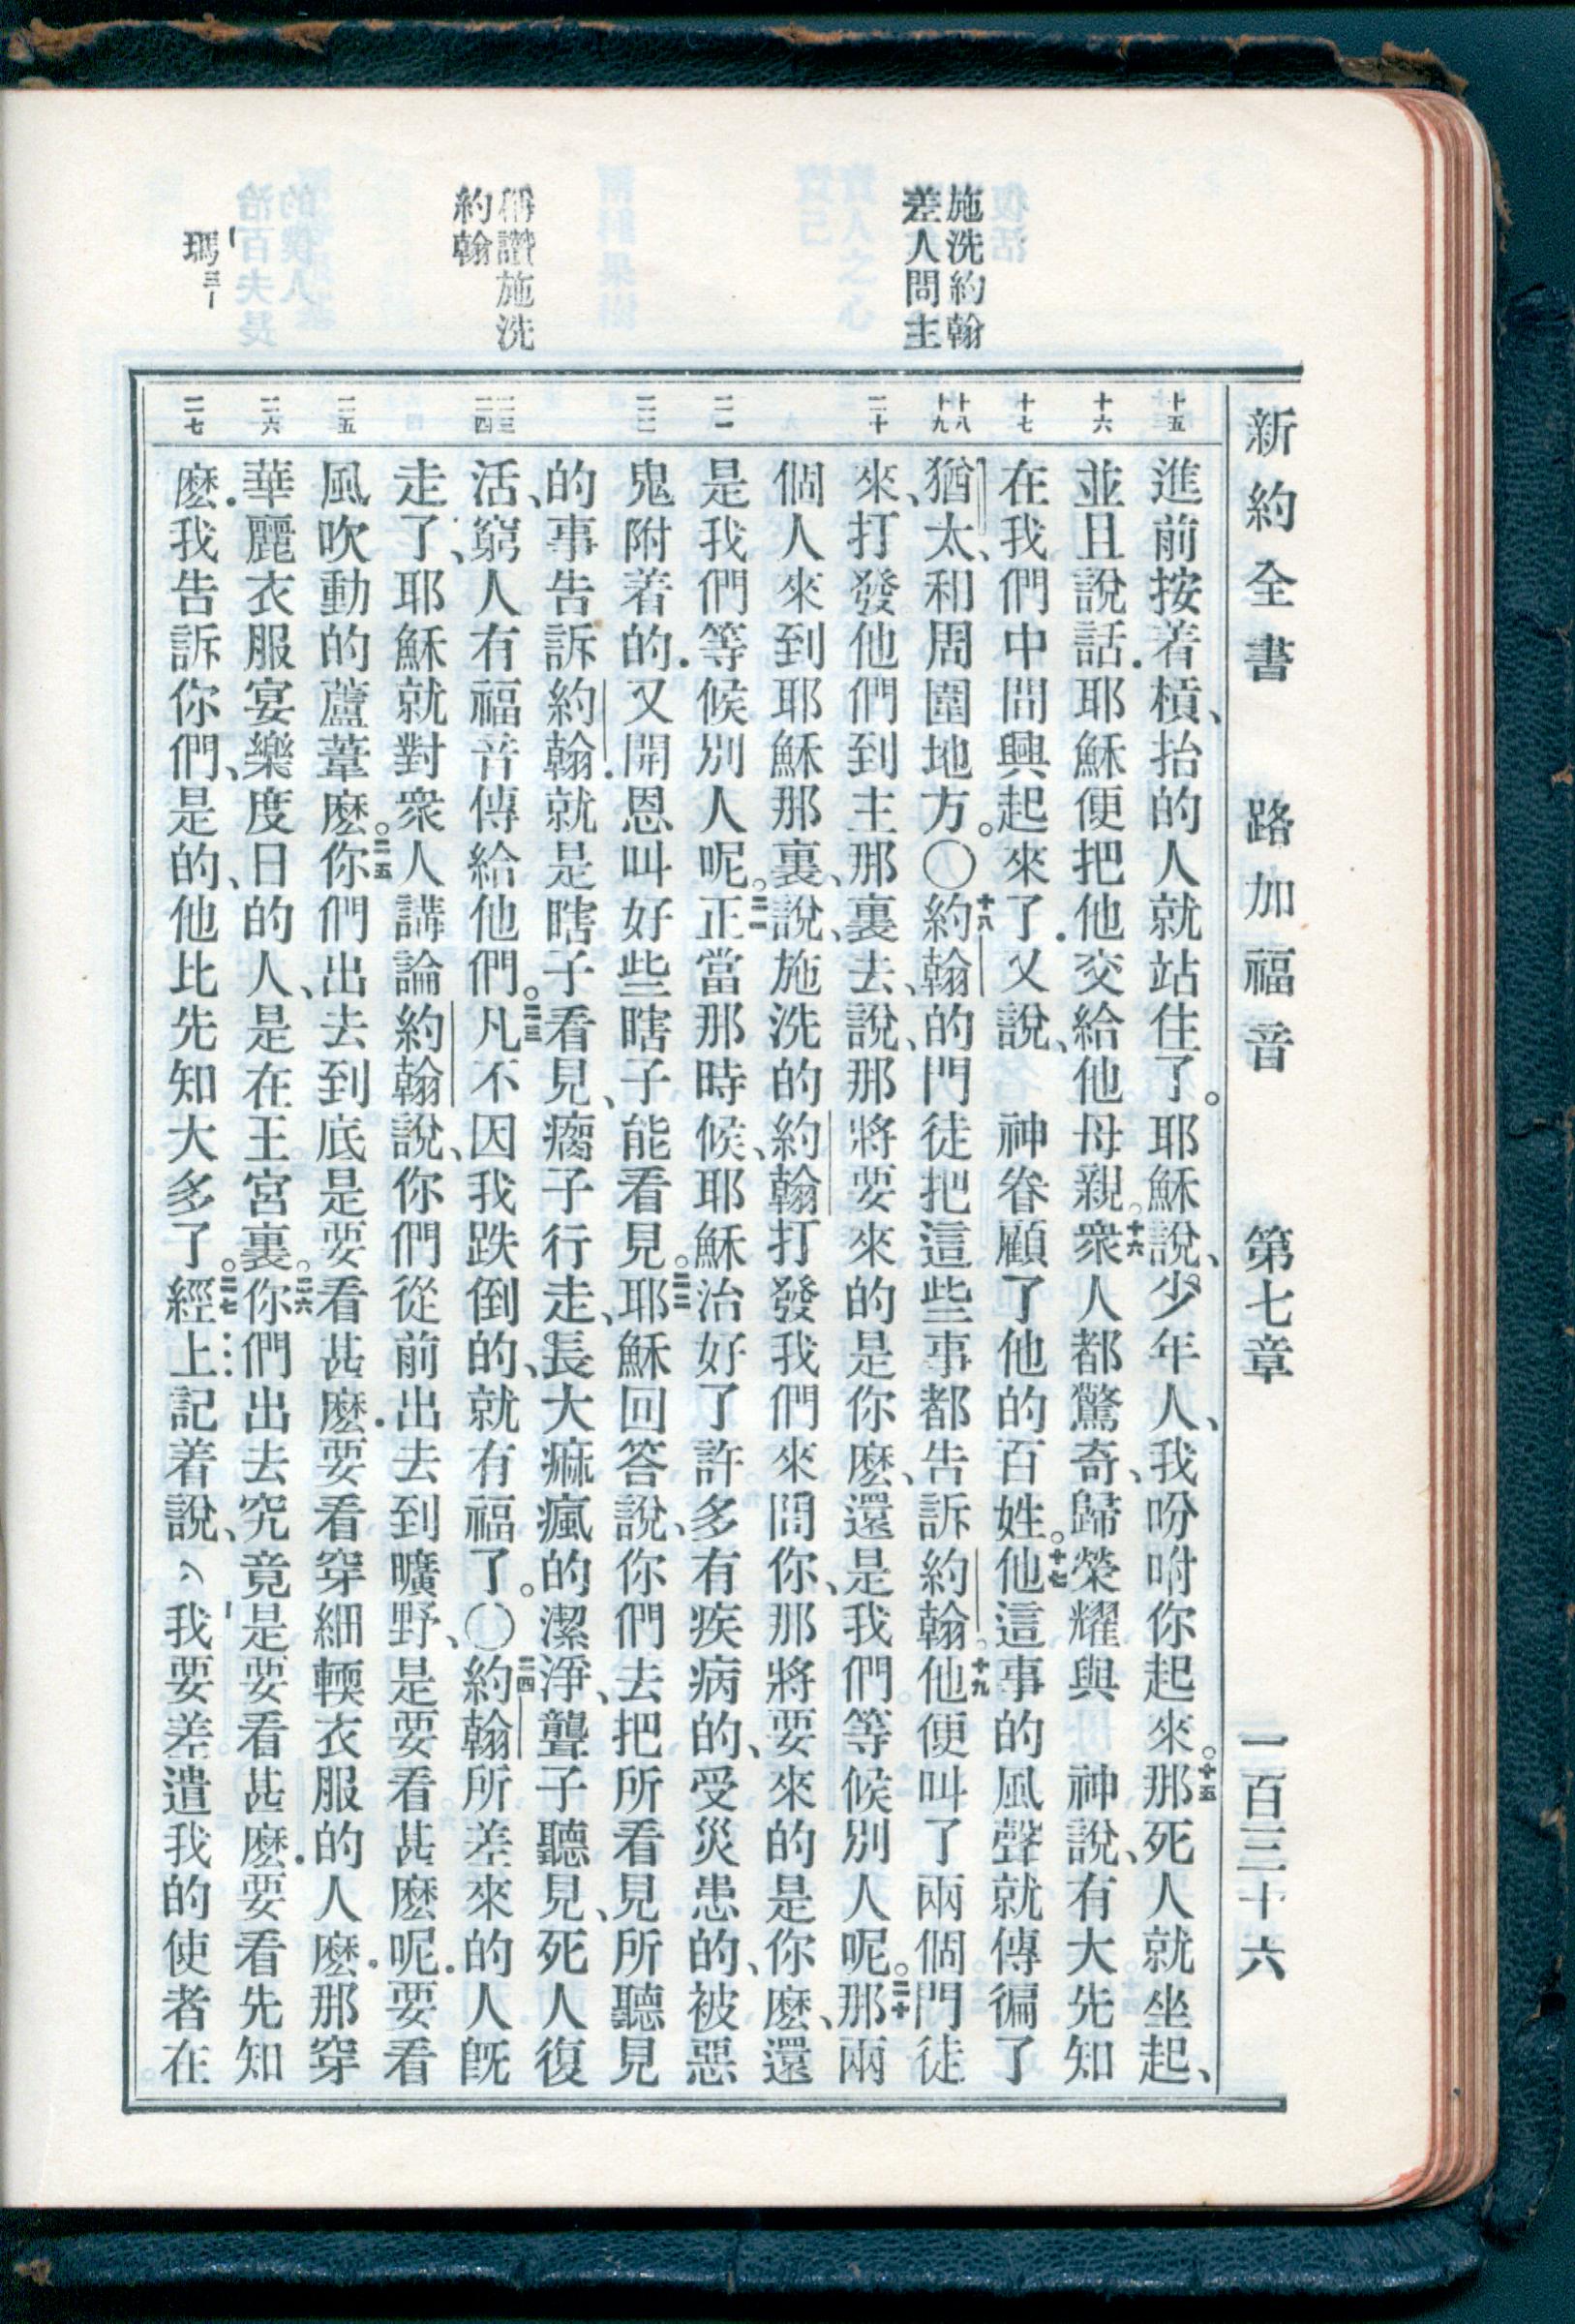 新約全書 路加福音 第七章 一百三十六
施洗約翰
差人問主
稱讚施洗
約翰
瑪三1
十五
十六
十七
十八
十九
二十
二一
二二
二三
二四
二五
二六
二七
進前按着槓、抬的人就站住了。耶穌說、少年人、我吩咐你起來。十五那死人就坐起、
並且說話．耶穌便把他交給他母親。十六衆人都驚奇、歸榮耀與 神說、有大先知
在我們中間興起來了．又說、 神眷顧了他的百姓。十七他這事的風聲就傳徧了
猶太、和周圍地方。〇十八約翰的門徒把這些事都告訴約翰。十九他便叫了兩個門徒
來、打發他們到主那裏去、說、那將要來的是你麽、還是我們等候別人呢。二十那兩
個人來到耶穌那裏、說、施洗的約翰打發我們來問你、那將要來的是你麽、還
是我們等候別人呢。二一正當那時候、耶穌治好了許多有疾病的、受災患的、被惡
鬼附着的．又開恩叫好些瞎子能看見。二二耶穌回答說、你們去把所看見所聽見
的事告訴約翰．就是瞎子看見、瘸子行走、長大痲瘋的潔淨、聾子聽見、死人復
活、窮人有福音傳給他們。二三凡不因我跌倒的、就有福了。〇二四約翰所差來的人旣
走了、耶穌就對衆人講論約翰說、你們從前出去到曠野、是要看甚麽呢．要看
風吹動的蘆葦麽。二五你們出去到底是要看甚麽．要看穿細輭衣服的人麽．那穿
華麗衣服宴樂度日的人、是在王宮裏。二六你們出去究竟是要看甚麽．要看先知
麽．我告訴你們、是的、他比先知大多了。二七經上記着說、我要差遣我的使者在